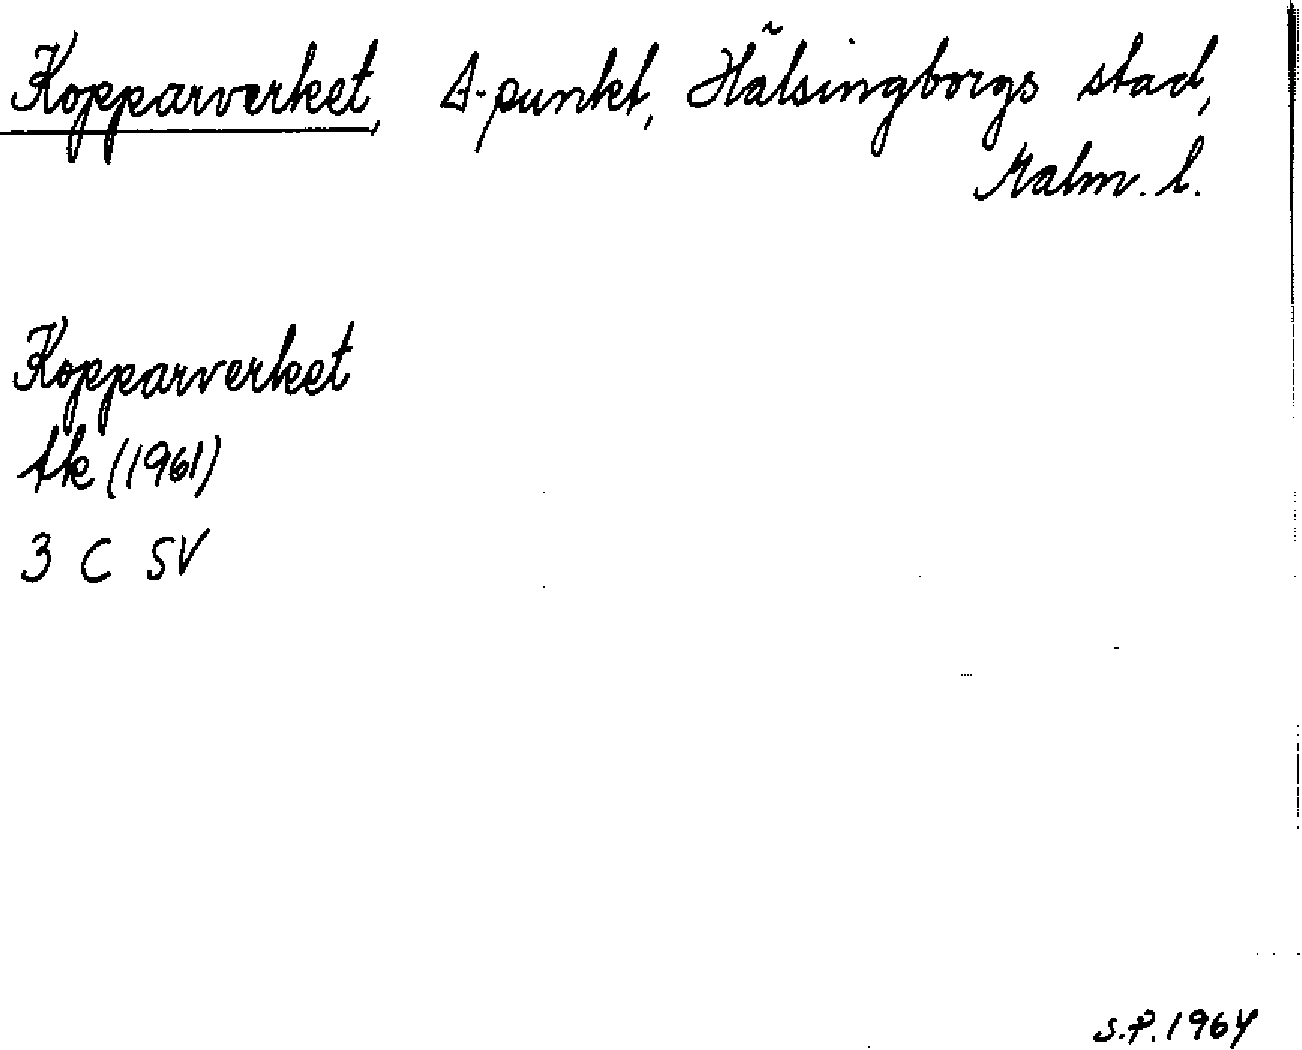 Kopparverket, Δ-punkt, Hälsingborgs stad,
Malm. l.
Kopparverket
tk (1961)
3 C SV
S.P. 1964